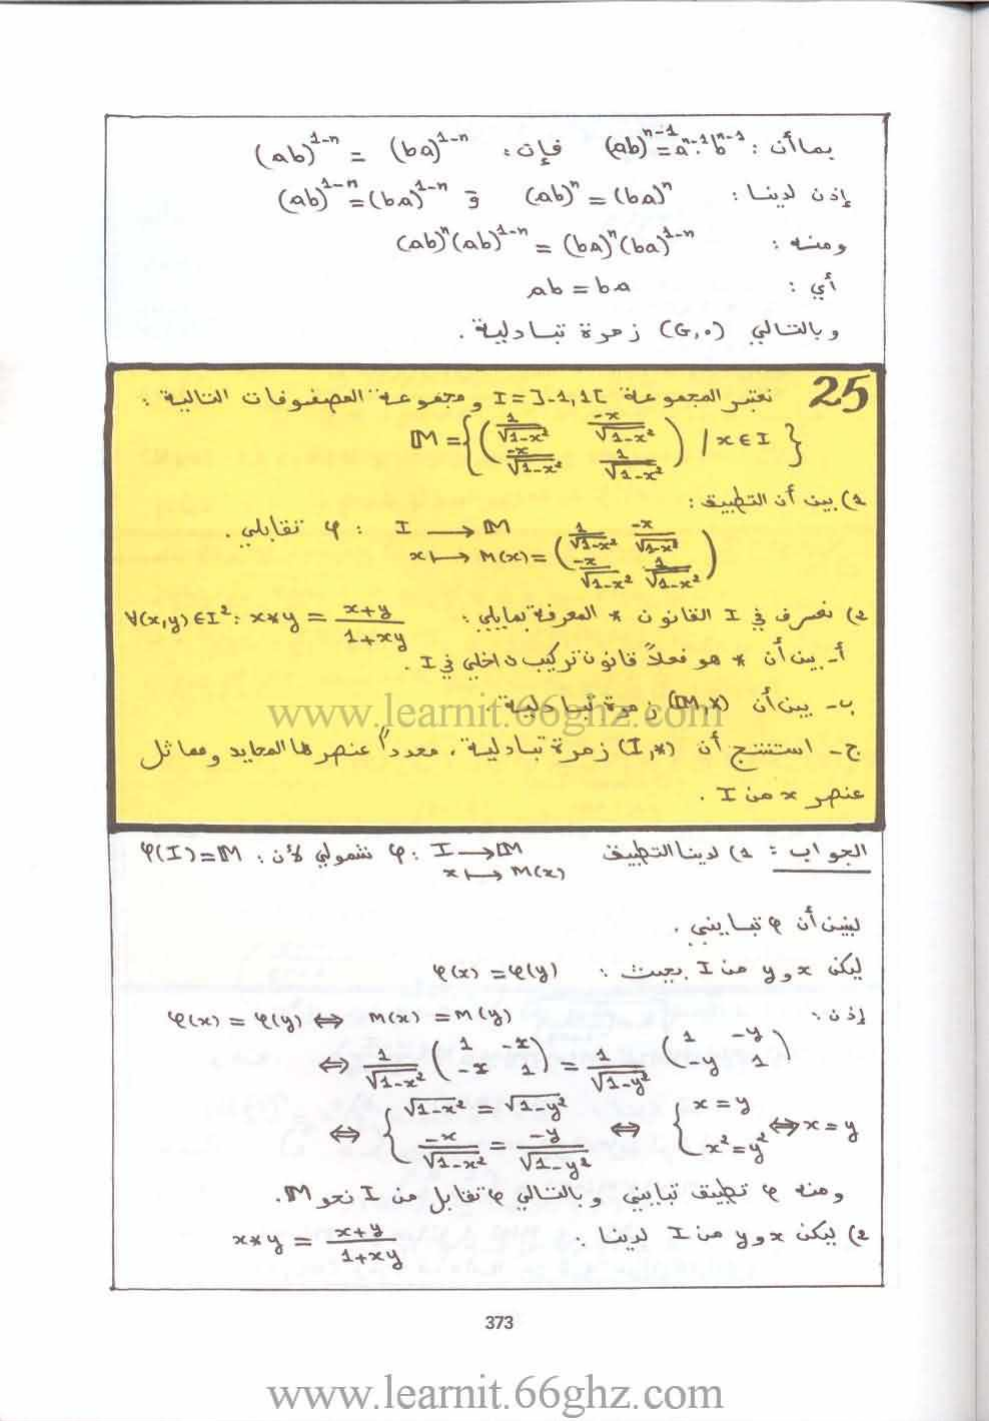 بما أن : (ab)ⁿ⁻¹ = aⁿ⁻¹.bⁿ⁻¹ فإن : (ab)¹⁻ⁿ = (ba)¹⁻ⁿ
إذن لدينا : (ab)ⁿ = (ba)ⁿ و (ab)¹⁻ⁿ = (ba)¹⁻ⁿ
ومنه : (ab)ⁿ(ab)¹⁻ⁿ = (ba)ⁿ(ba)¹⁻ⁿ
أي : ab = ba
وبالتالي (G,.) زمرة تبادلية .
25 نعتبر المجموعة I = ]-1,1[ ومجموعة المصفوفات التالية :
M = { ( 1/√1-x² -x/√1-x² ; -x/√1-x² 1/√1-x² ) / x ∈ I }
1) بين أن التطبيق :
φ : I ⟶ M تقابلي .
x ⟼ M(x) = ( 1/√1-x² -x/√1-x² ; -x/√1-x² 1/√1-x² )
2) نعرف في I القانون * المعرفة بمايلي : ∀(x,y) ∈ I² : x*y = (x+y)/(1+xy)
أ- بين أن * هو فعلاً قانون تركيب داخلي في I .
ب- بين أن (M,×) زمرة تبادلية .
www.learnit.66ghz.com
ج- استنتج أن (I,*) زمرة تبادلية ، محدداً عنصرها المحايد ومماثل
عنصر x من I .
الجواب : 1) لدينا التطبيق φ : I ⟶ M شمولي لأن : φ(I) = M
x ⟼ M(x)
لنبين أن φ تبايني .
ليكن x و y من I بحيث : φ(x) = φ(y)
إذن : φ(x) = φ(y) ⇔ M(x) = M(y)
⇔ 1/√1-x² ( 1 -x ; -x 1 ) = 1/√1-y² ( 1 -y ; -y 1 )
⇔ { √1-x² = √1-y² ; -x/√1-x² = -y/√1-y² ⇔ { x = y ; x² = y² ⇔ x = y
ومنه φ تطبيق تبايني وبالتالي φ تقابل من I نحو M.
2) ليكن x و y من I لدينا : x*y = (x+y)/(1+xy)
373
www.learnit.66ghz.com